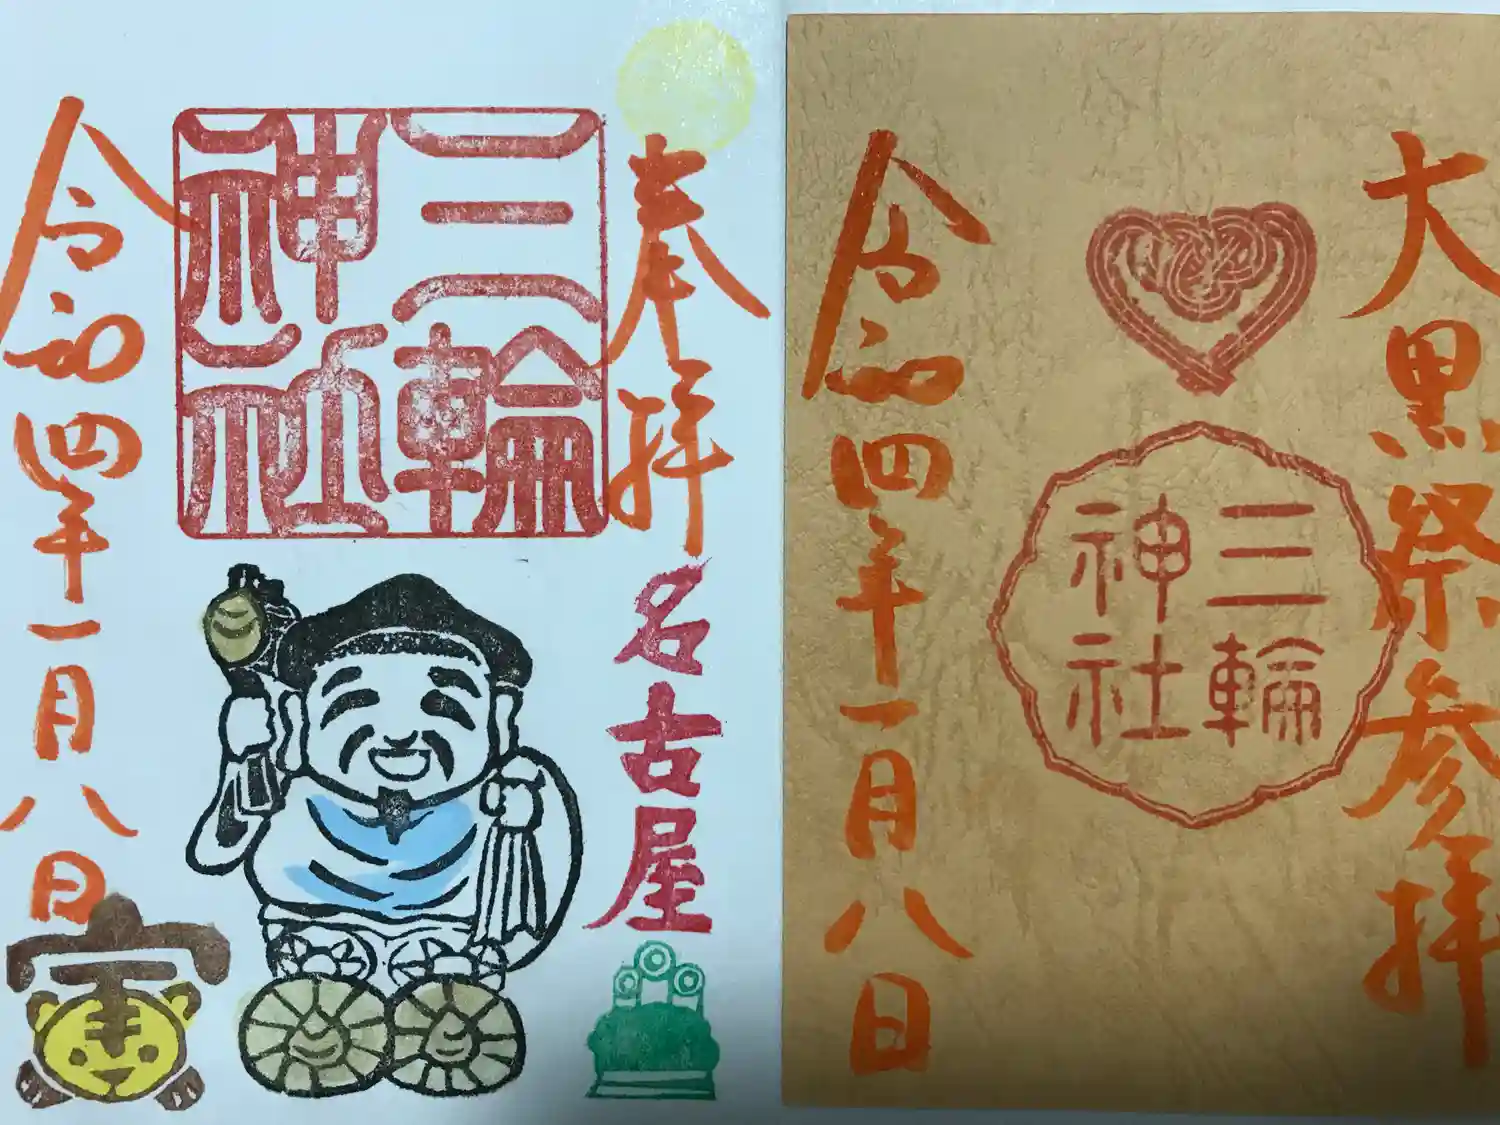 奉拝
名古屋
三輪
神社
令和四年一月八日
寅
大黒祭参拝
三輪
神社
令和四年一月八日